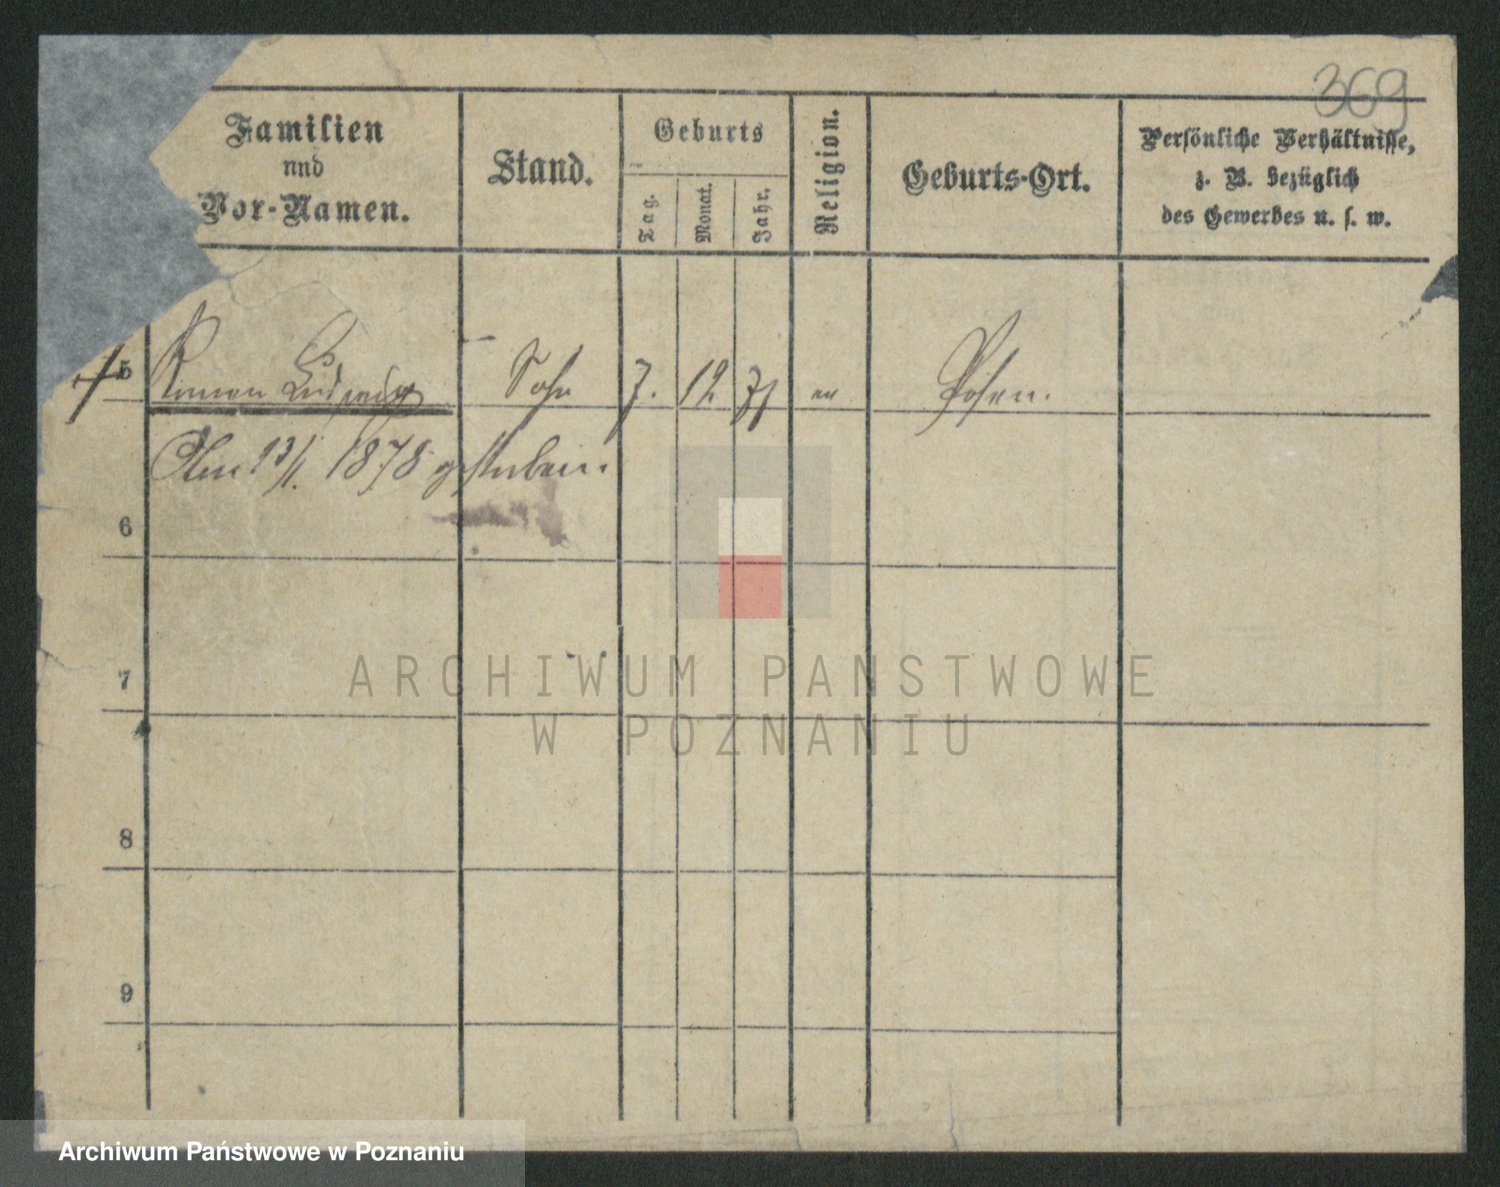 369
Familien
und
Vor-Namen.
Stand.
Geburts
Tag.
Monat.
Jahr.
Religion.
Geburts-Ort.
Persönliche Verhältnisse,
z. B. bezüglich
des Gewerbes u. s. w.
5 Roman Ludwig Sohn 7. 12 77 Posen.
Am 13/1. 1878 gestorben.
6
7
8
9
ARCHIWUM PAŃSTWOWE
W POZNANIU
Archiwum Państwowe w Poznaniu